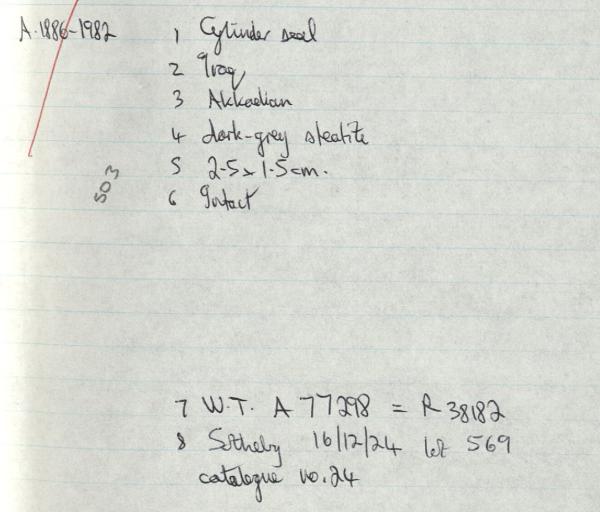 A.1886-1982
1 Cylinder seal
2 Iraq
3 Akkadian
4 dark-grey steatite
5 2.5 x 1.5 cm.
503
6 Intact
7 W.T. A 77298 = R 38182
8 Sotheby 16/12/24 lot 569
catalogue no. 24